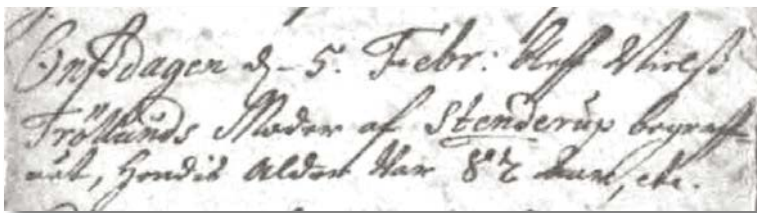 Onsdagen d. 5. Febr: bleff Nielß
Tröllunds Moder af Stenderup begraff-
uet, hendis Alder Var 82 aar, etc.